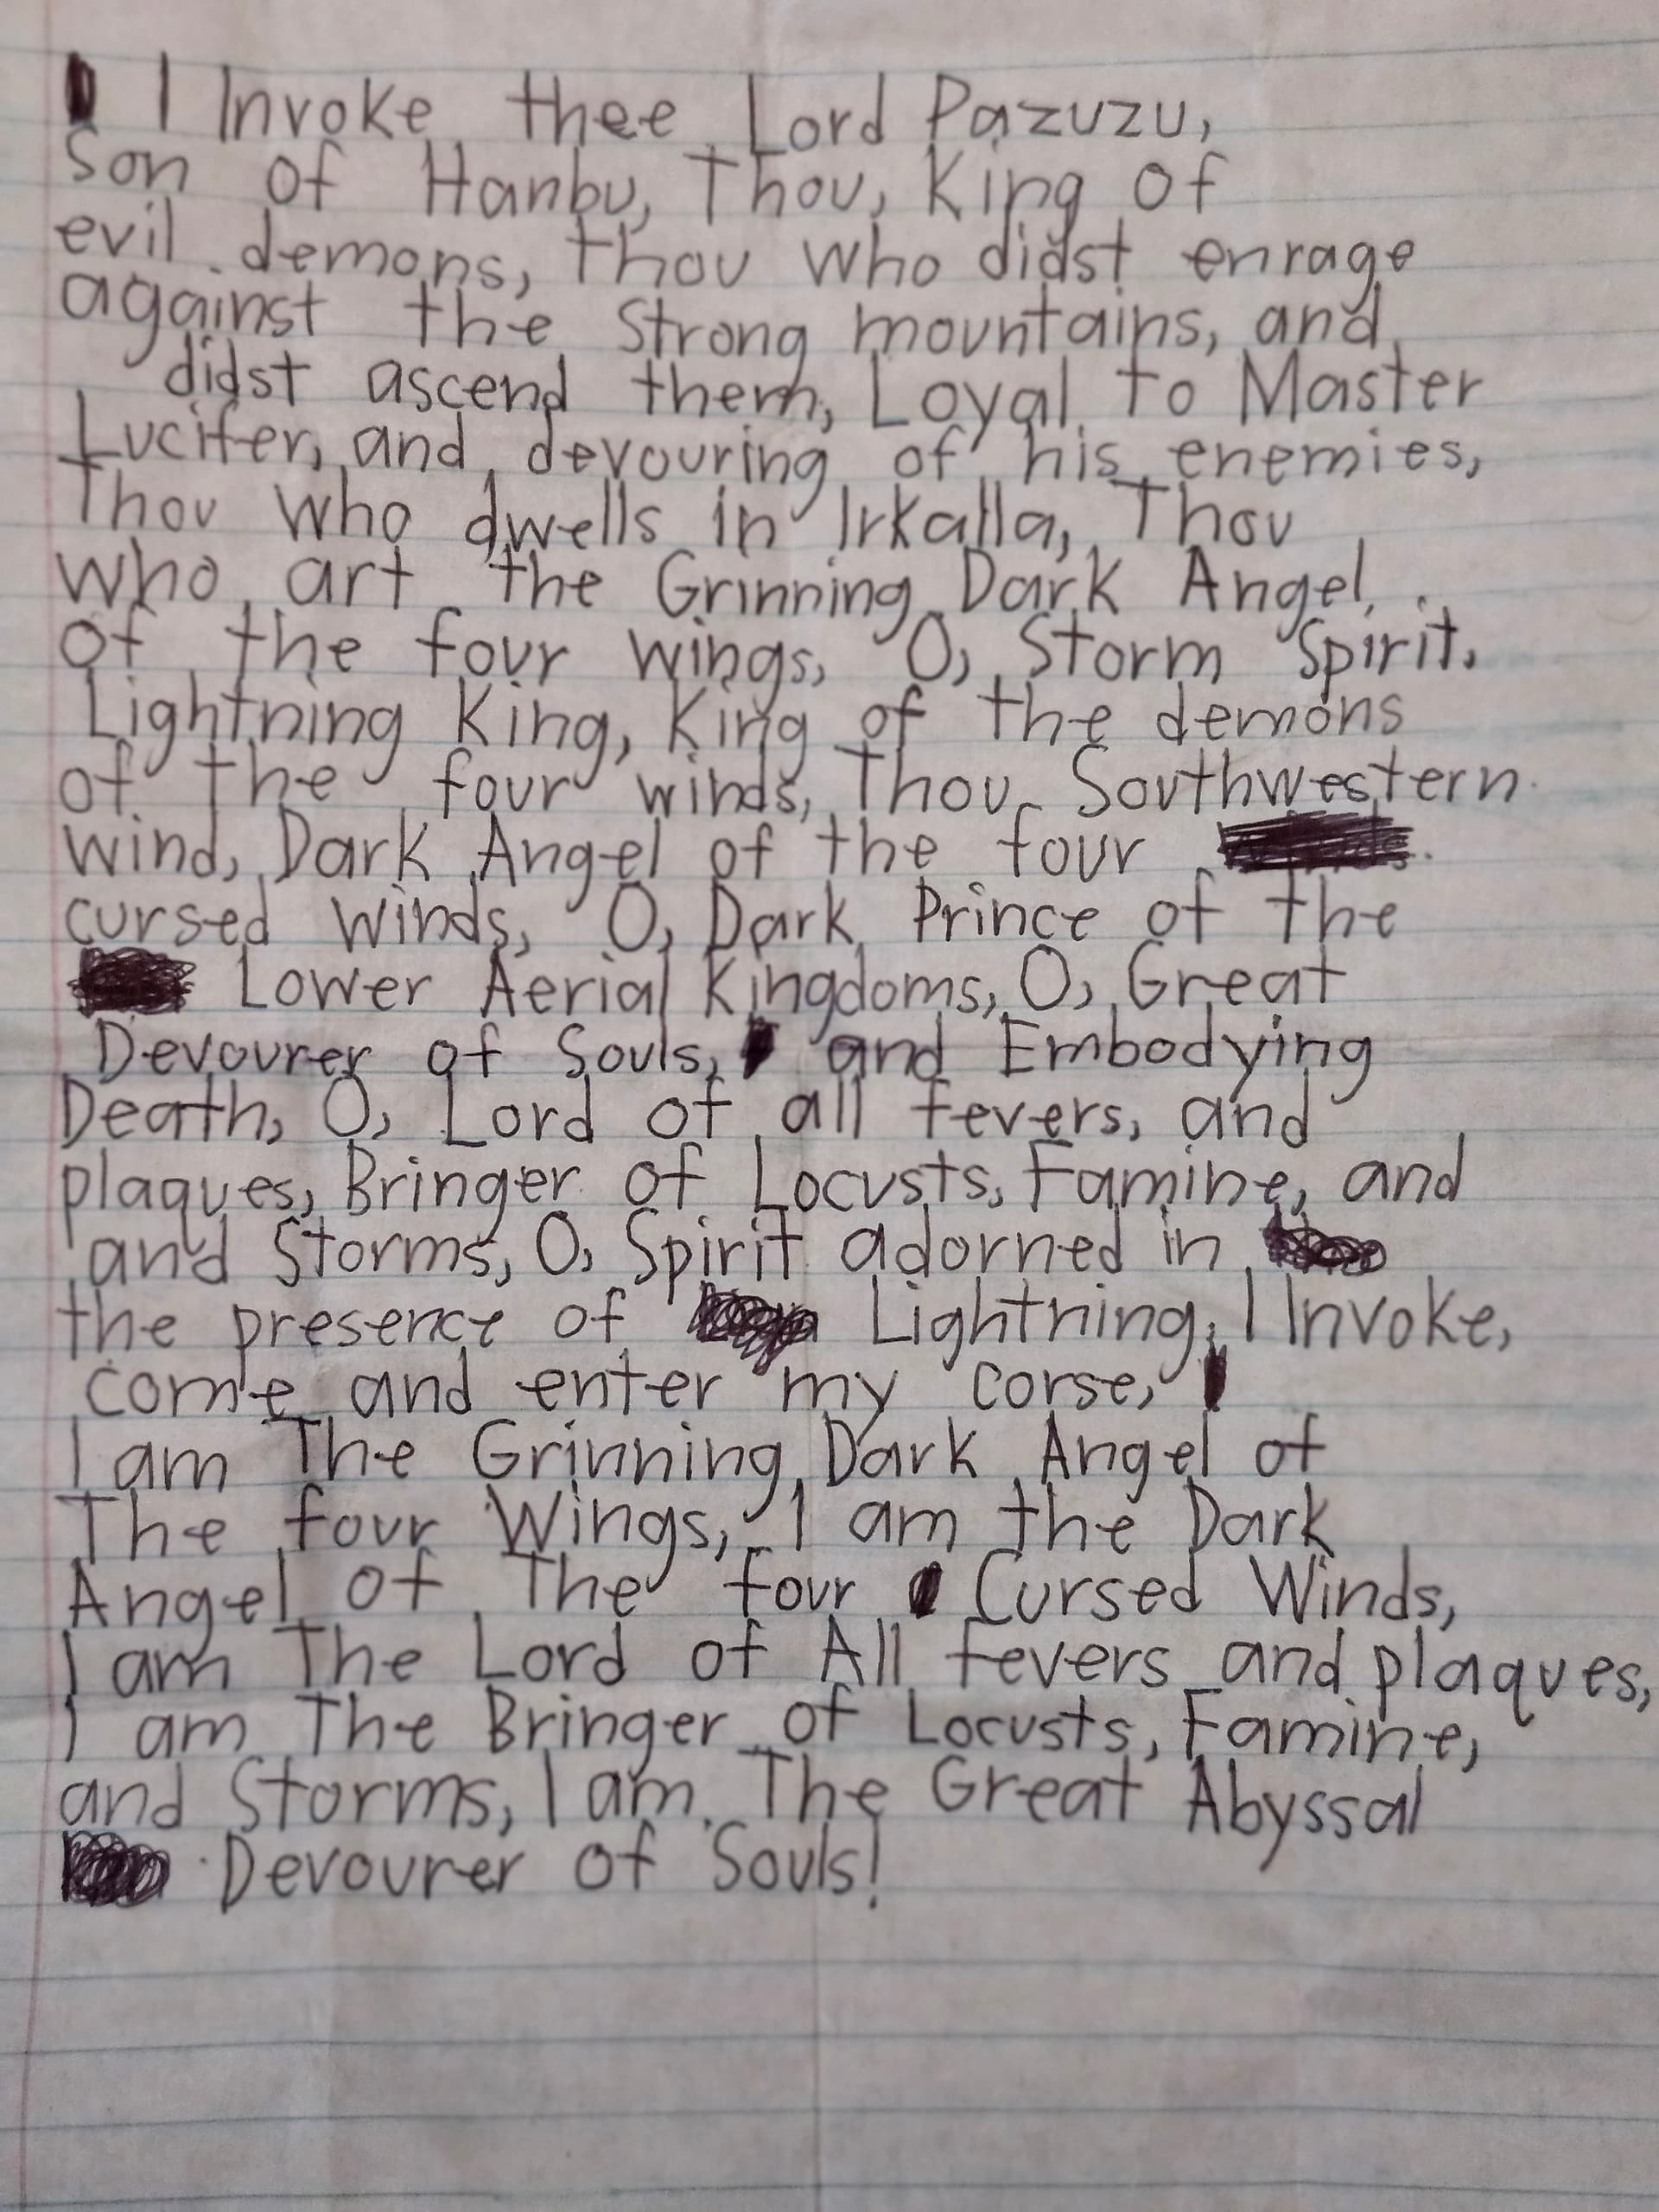 I Invoke thee Lord Pazuzu,
Son of Hanbu, Thou, King of
evil demons, Thou who didst enrage
against the Strong mountains, and
didst ascend them, Loyal to Master
Lucifer, and devouring of his enemies,
Thou who dwells in Irkalla, Thou
who art the Grinning Dark Angel
of the four wings, O, Storm Spirit,
Lightning King, King of the demons
of the four winds, Thou Southwestern
wind, Dark Angel of the four
cursed winds, O, Dark Prince of the
Lower Aerial Kingdoms, O, Great
Devourer of Souls, and Embodying
Death, O, Lord of all fevers, and
plaques, Bringer of Locusts, Famine, and
and Storms, O, Spirit adorned in
the presence of Lightning, I Invoke,
come and enter my corse,
I am The Grinning Dark Angel of
The four Wings, I am the Dark
Angel of The four Cursed Winds,
I am The Lord of All fevers and plaques,
I am The Bringer of Locusts, Famine,
and Storms, I am The Great Abyssal
Devourer of Souls!